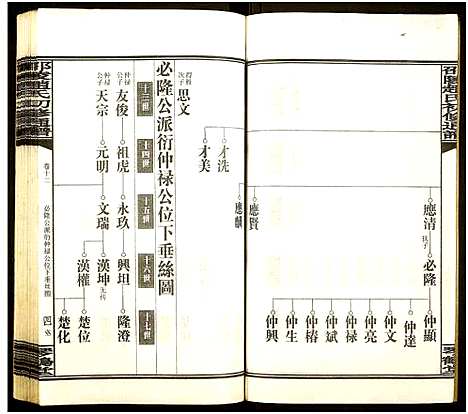 應清
抚子
必隆
仲顯
仲達
仲文
仲亮
仲祿
仲榕
仲生
仲興
應賢
應麒
才洗
才美
得裕次子
思文
必隆公派衍仲祿公位下垂絲圖
十三世
十四世
十五世
十六世
十七世
仲祿公子
友俊
祖虎
永玖
興坦
隆澄
仲祿公子
天宗
元明
文瑞
漢坤
无传
漢權
楚位
楚化
卷十二
必隆公派衍仲祿公位下垂絲圖